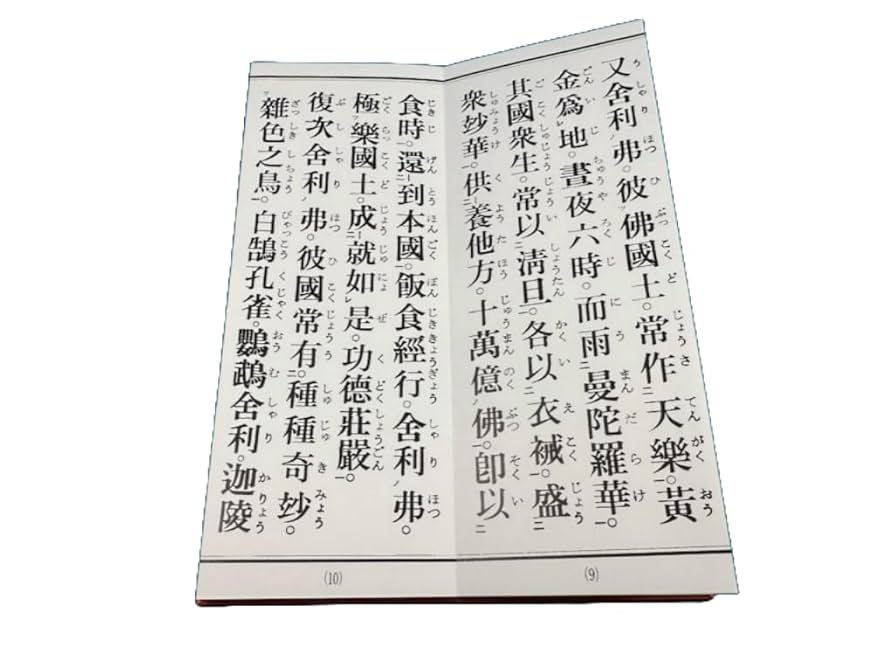 又舍利弗。彼佛國土。常作天樂。黃
金爲地。晝夜六時。而雨曼陀羅華。
其國衆生。常以淸旦。各以衣裓。盛
衆妙華。供養他方。十萬億佛。卽以
(9)
食時。還到本國。飯食經行。舍利弗。
極樂國土。成就如是。功德莊嚴。
復次舍利弗。彼國常有。種種奇妙。
雜色之鳥。白鵠孔雀。鸚鵡舍利。迦陵
(10)